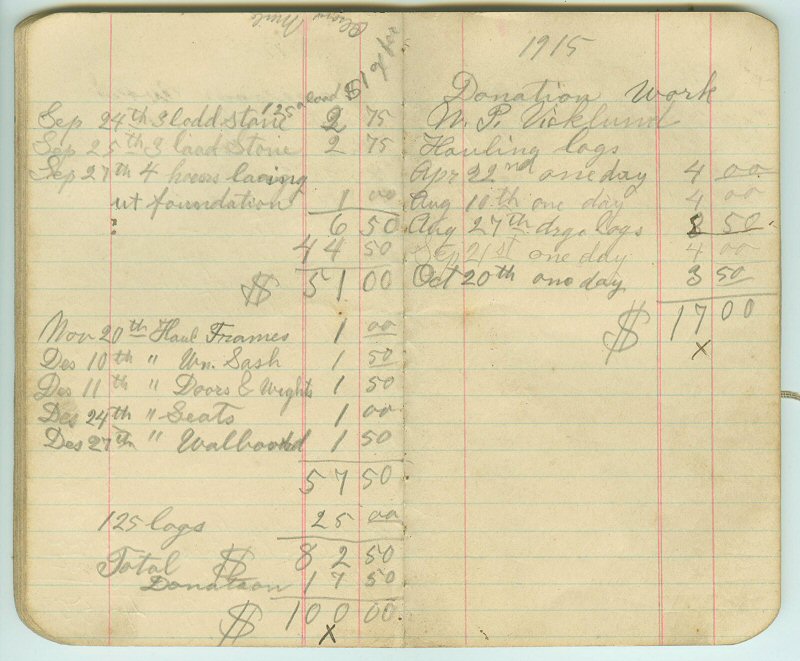 125 a load $1 
Sep 24th 3 lodd stone 2 75
Sep 25th 3 load Stone 2 75
Sep 27th 4 hoours laeing
ut foundation 1 00
6 50
44 50
$ 51 00
Nov 20th Haul Frames 1 00
Des 10th " Wn. Sash 1 50
Des 11th " Doors & Wights 1 50
Des 24th " Seats 1 00
Des 27th " Walboord 1 50
57 50
125 logs 25 00
Total $ 82 50
Donation 17 50
$ 100 00
x
1915
Donation Work
W. P. Vicklund
Hauling logs
Apr 22nd one day 4 00
Aug 10th one day 4 00
Aug 27th drga logs 1 50
Sep 21st one day 4 00
Oct 20th one day 3 50
$ 17 00
x